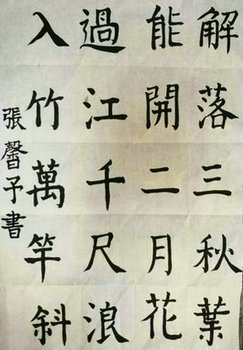 解落三秋葉
能開二月花
過江千尺浪
入竹萬竿斜
張馨予書